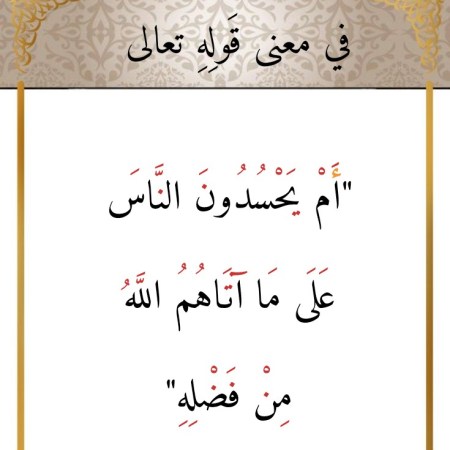 في معنى قَولِهِ تعالى
"أَمْ يَحْسُدُونَ النَّاسَ
عَلَى مَا آتَاهُمُ اللَّهُ
مِنْ فَضْلِهِ"